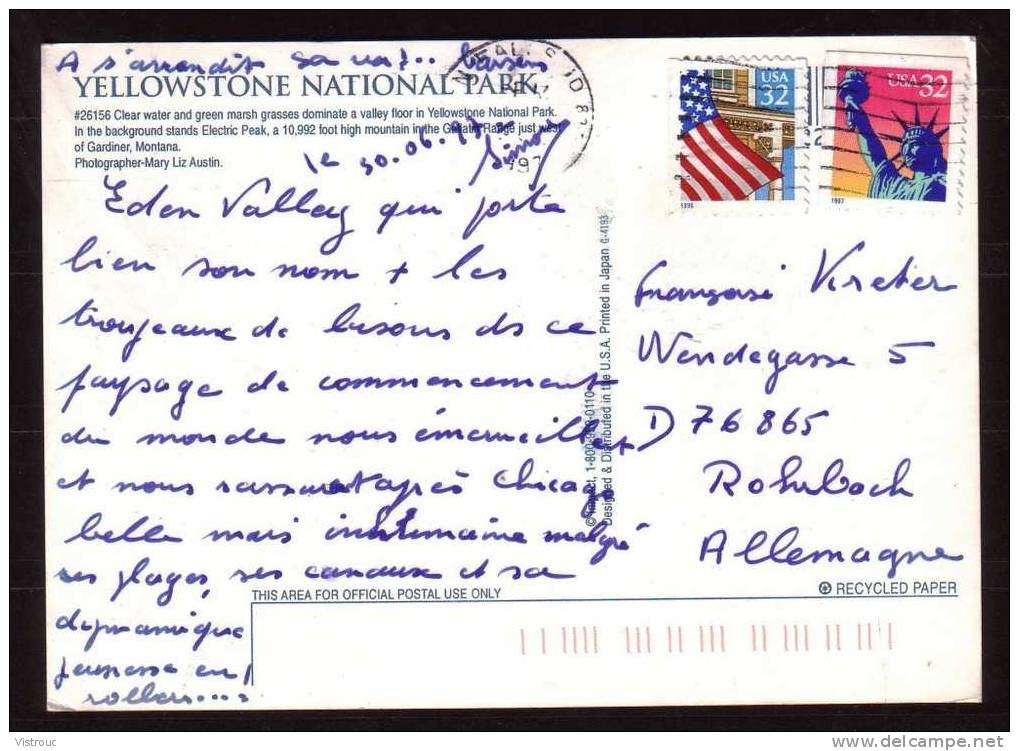 A s'arrondit sa va?.. baisers
YELLOWSTONE NATIONAL PARK
#26156 Clear water and green marsh grasses dominate a valley floor in Yellowstone National Park.
In the background stands Electric Peak, a 10,992 foot high mountain in the Gallatin Range just west
of Gardiner, Montana.
Photographer-Mary Liz Austin.
le 30.06.97
Eden Valley qui porte
bien son nom + les
troupeaux de bisons ds ce
paysage de commencement
du monde nous émerveillent
et nous rassurent après Chicago
belle mais inhumaine malgré
ses plages, ses canaux et sa
dynamique
jeunesse en
rollers...
USA
32
1996
USA 32
1997
Françoise Kreter
Wendegasse 5
D 76865
Rohrbach
Allemagne
© Impact, 1-800-9 -0110
Designed & Distributed in the U.S.A. Printed in Japan G-4193
THIS AREA FOR OFFICIAL POSTAL USE ONLY
RECYCLED PAPER
Vistrouc
www.delcampe.net